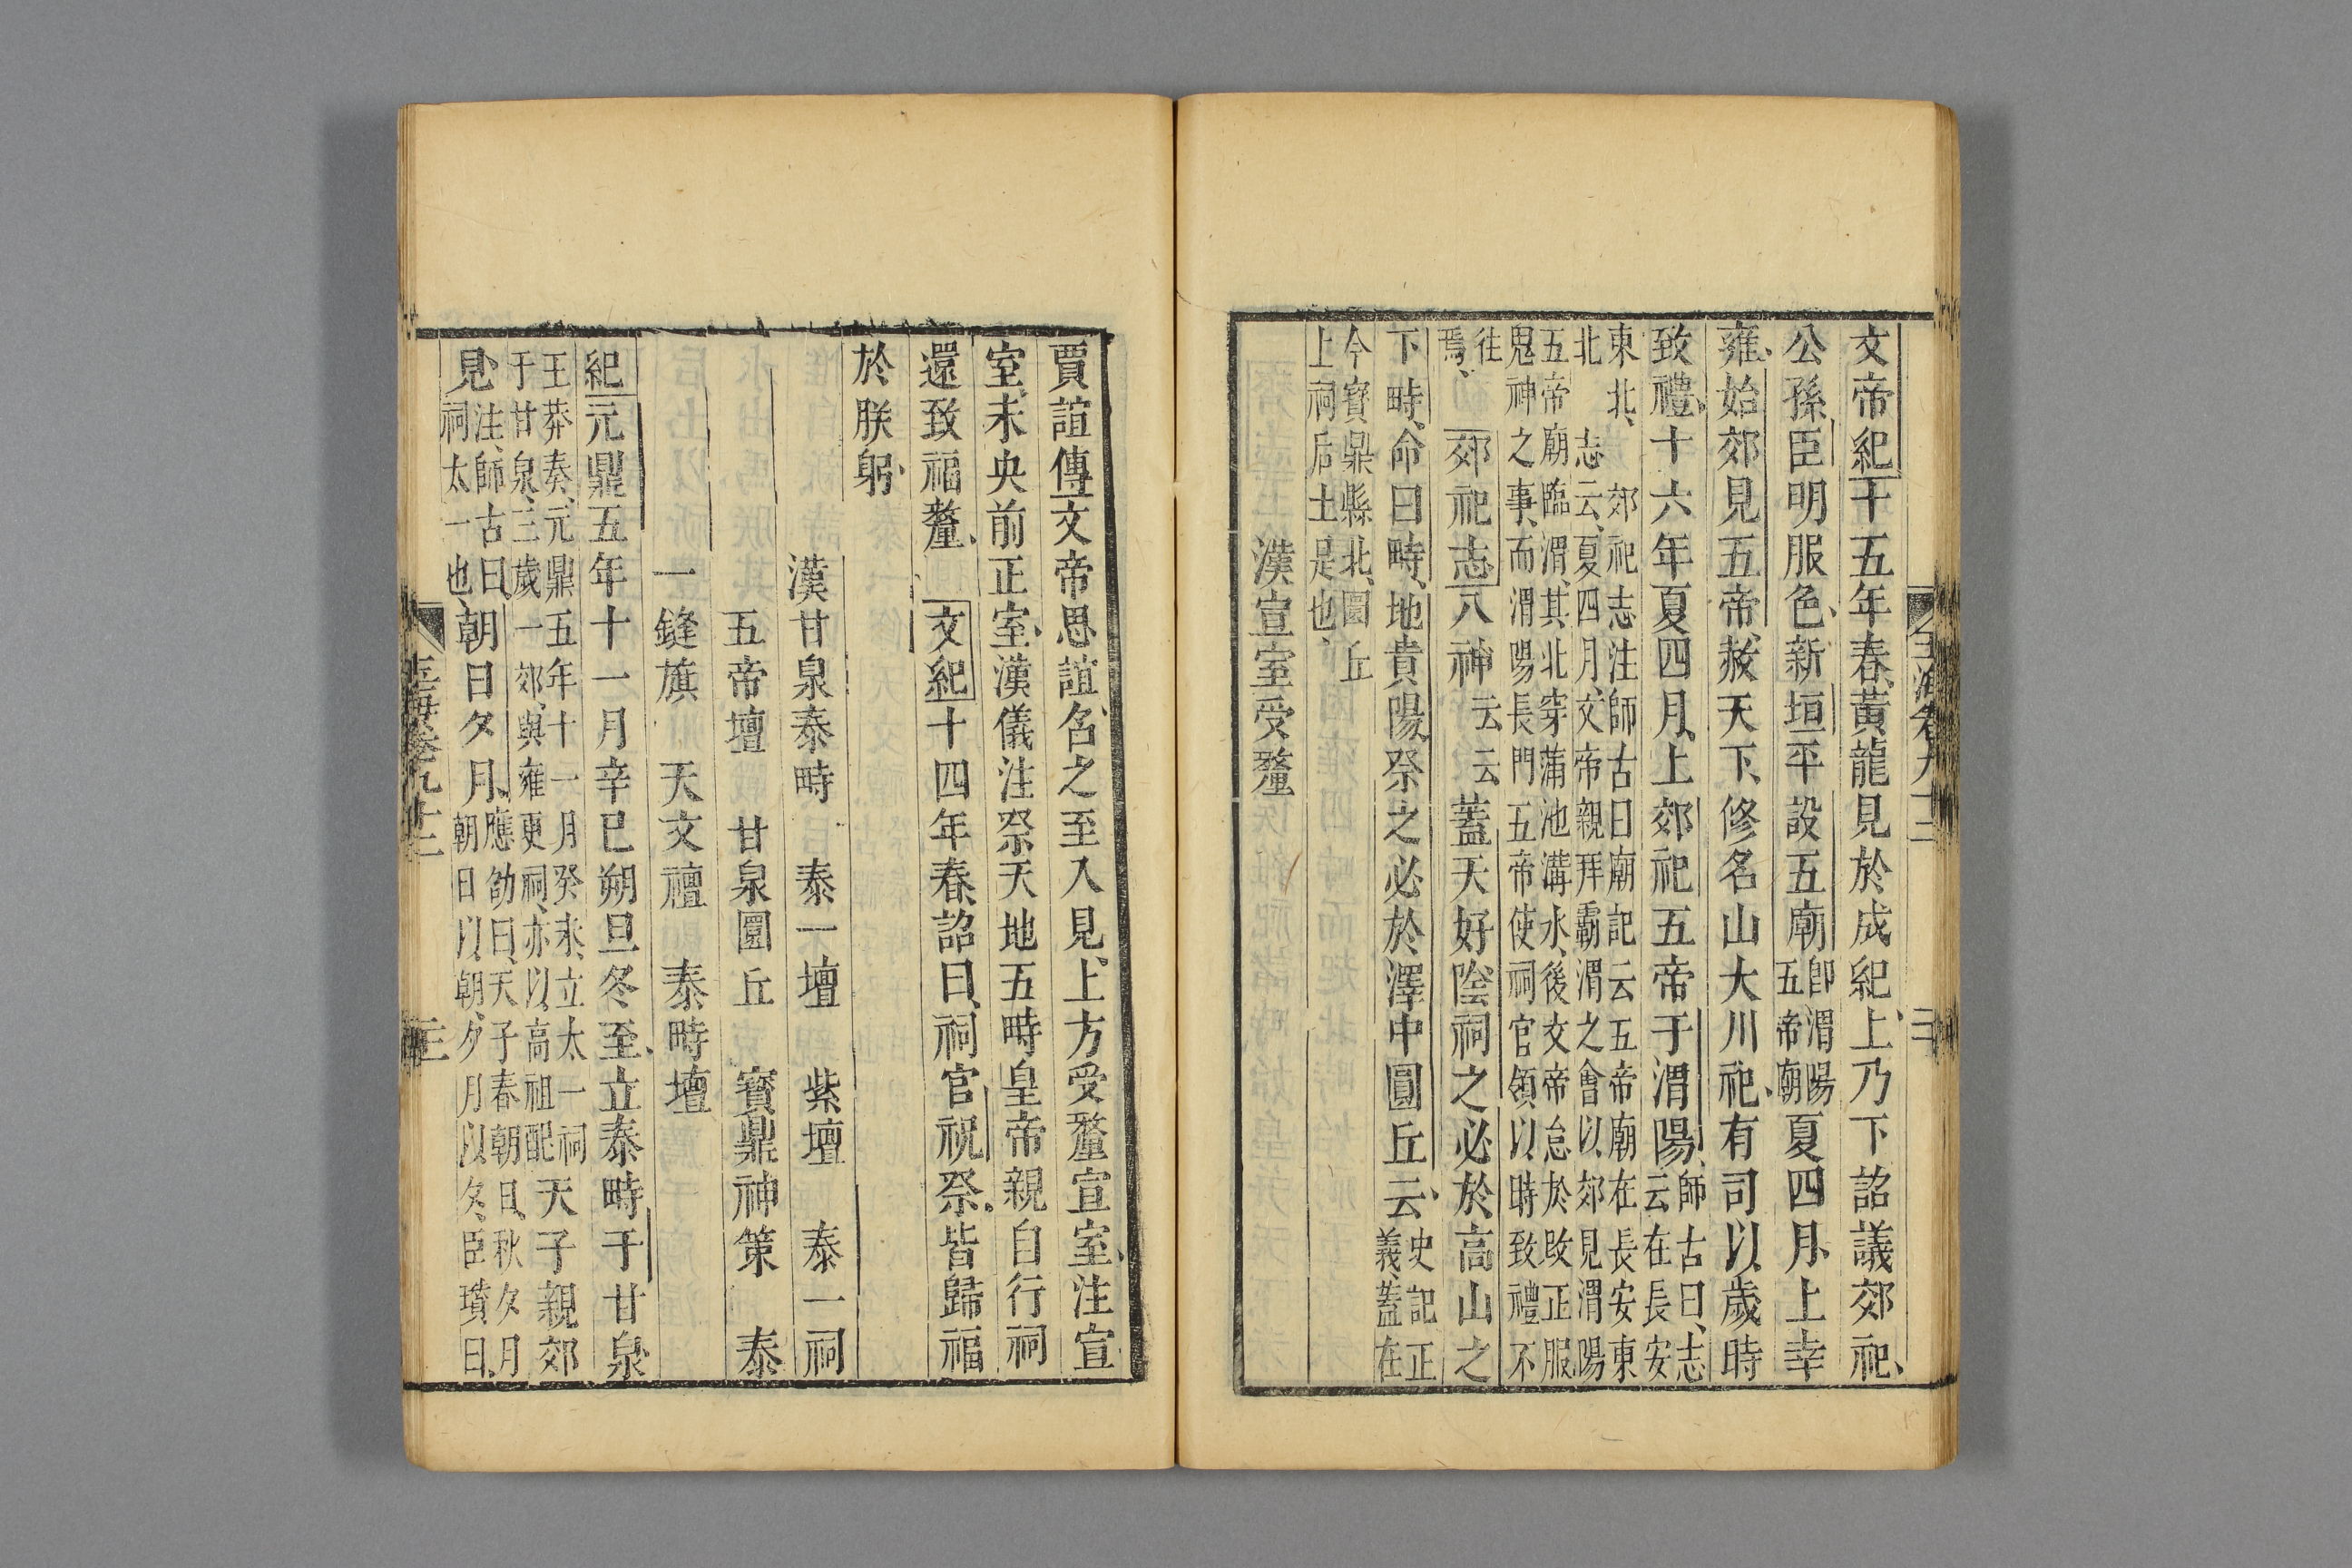 文帝紀十五年春、黃龍見於成紀、上乃下詔議郊祀、
公孫臣明服色、新垣平設五廟卽渭陽五帝廟夏四月、上幸
雍、始郊見五帝、赦天下、修名山大川祀、有司以歲時
致禮、十六年夏四月、上郊祀五帝于渭陽、師古曰、志云在長安
東北、郊祀志注師古曰廟記云五帝廟在長安東
北 志云、夏四月、文帝親拜霸渭之會以郊見渭陽
五帝廟臨渭、其北穿蒲池溝水、後文帝怠於改正服
鬼神之事、而渭陽長門五帝使祠官領以時致禮不
往焉、 郊祀志八神云云蓋天好陰祠之必於高山之
下畤、命曰畤、地貴陽、祭之必於澤中圜丘云、史記正義、蓋在
今寶鼎縣北、圜丘
上祠后土是也、
漢宣室受釐
賈誼傳文帝思誼、召之至入見、上方受釐宣室、注宣
室、未央前正室、漢儀注祭天地五畤皇帝親自行祠
還致福釐、 文紀十四年春、詔曰、祠官祝祭、皆歸福
於朕躬、
漢甘泉泰畤 泰一壇 紫壇 泰一祠
五帝壇 甘泉圜丘 寶鼎神策 泰
一鋒旗 天文禮 泰畤壇
紀元鼎五年十一月辛巳朔旦冬至、立泰畤于甘泉
王莽奏、元鼎五年十一月癸未、立太一祠
于甘泉、三歲一郊、與雍更祠、亦以高祖配天子親郊
見、注、師古曰、祠太一也、朝日夕月、應劭曰、天子春朝日、秋夕月
朝日以朝、夕月以夕、臣瓚曰、
玉海卷九十二
三